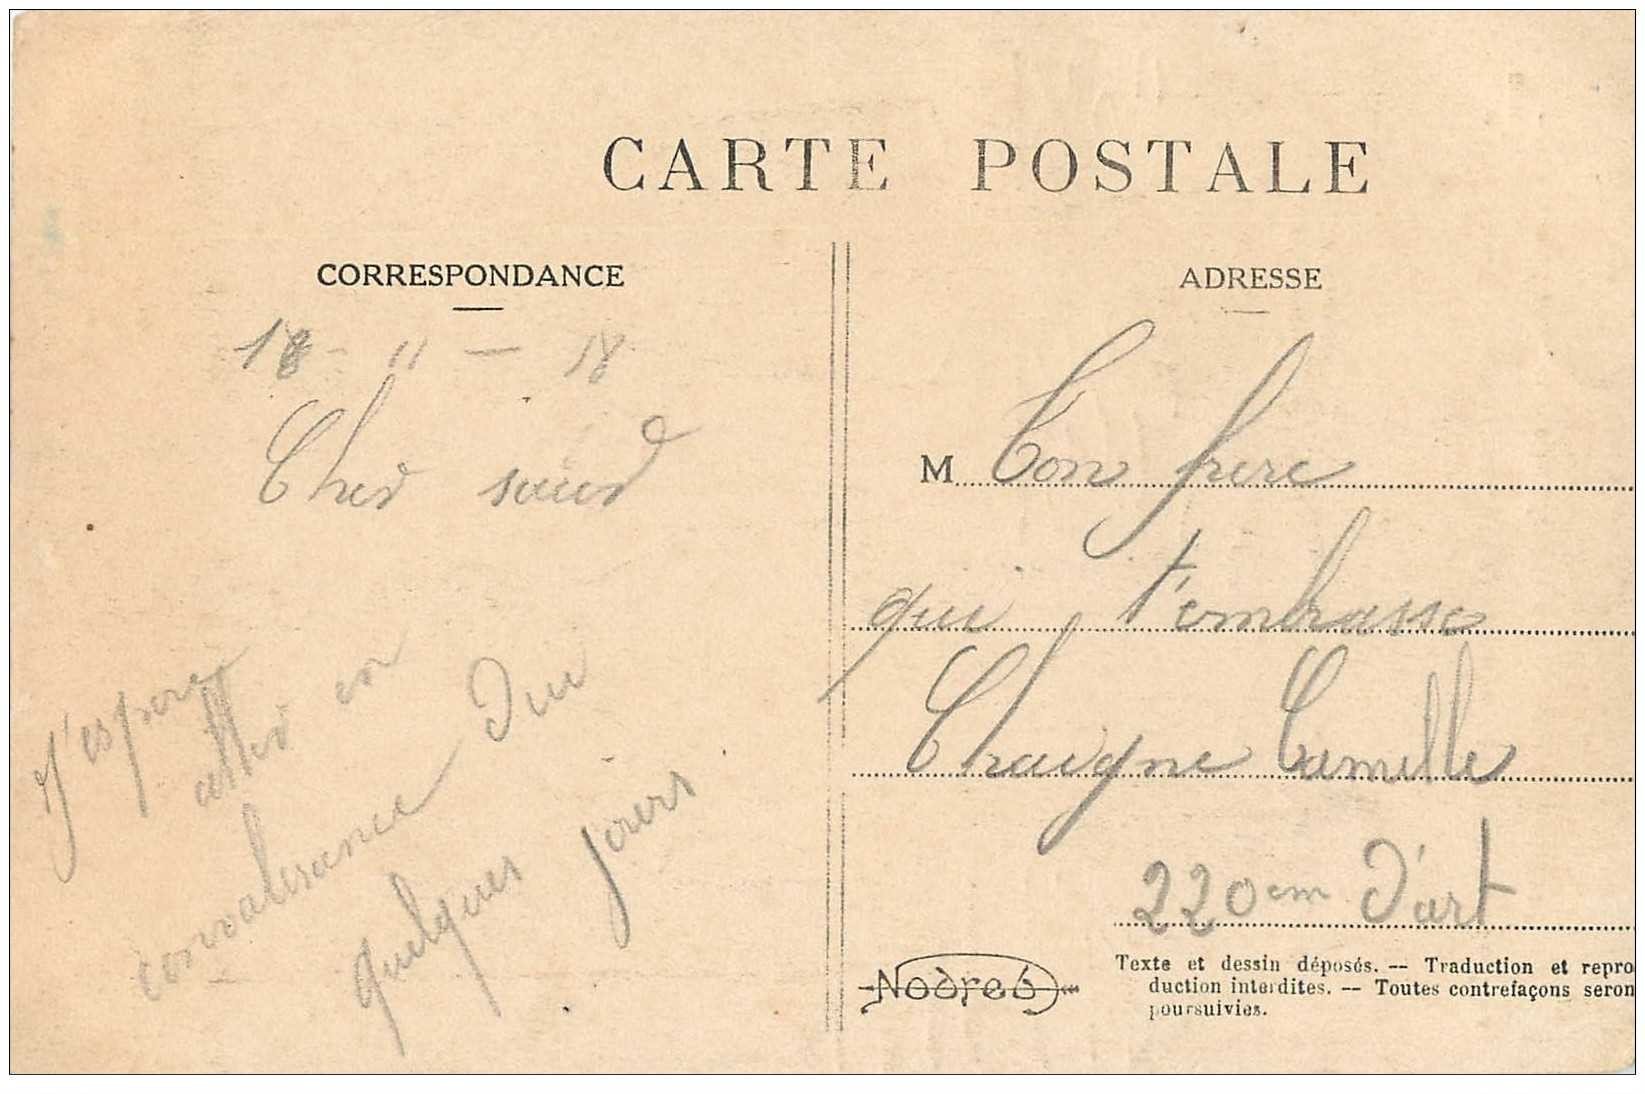 CARTE POSTALE
CORRESPONDANCE
18 - 11 - 18
Cher
J'espere
aller en
convalesance d'ici
quelques jours
ADRESSE
M Ton frere
qui t'embrasse
Chaigne Camille
220em d'art
Nodreb
Texte et dessin déposés. -- Traduction et repro
duction interdites. -- Toutes contrefaçons seron
poursuivies.